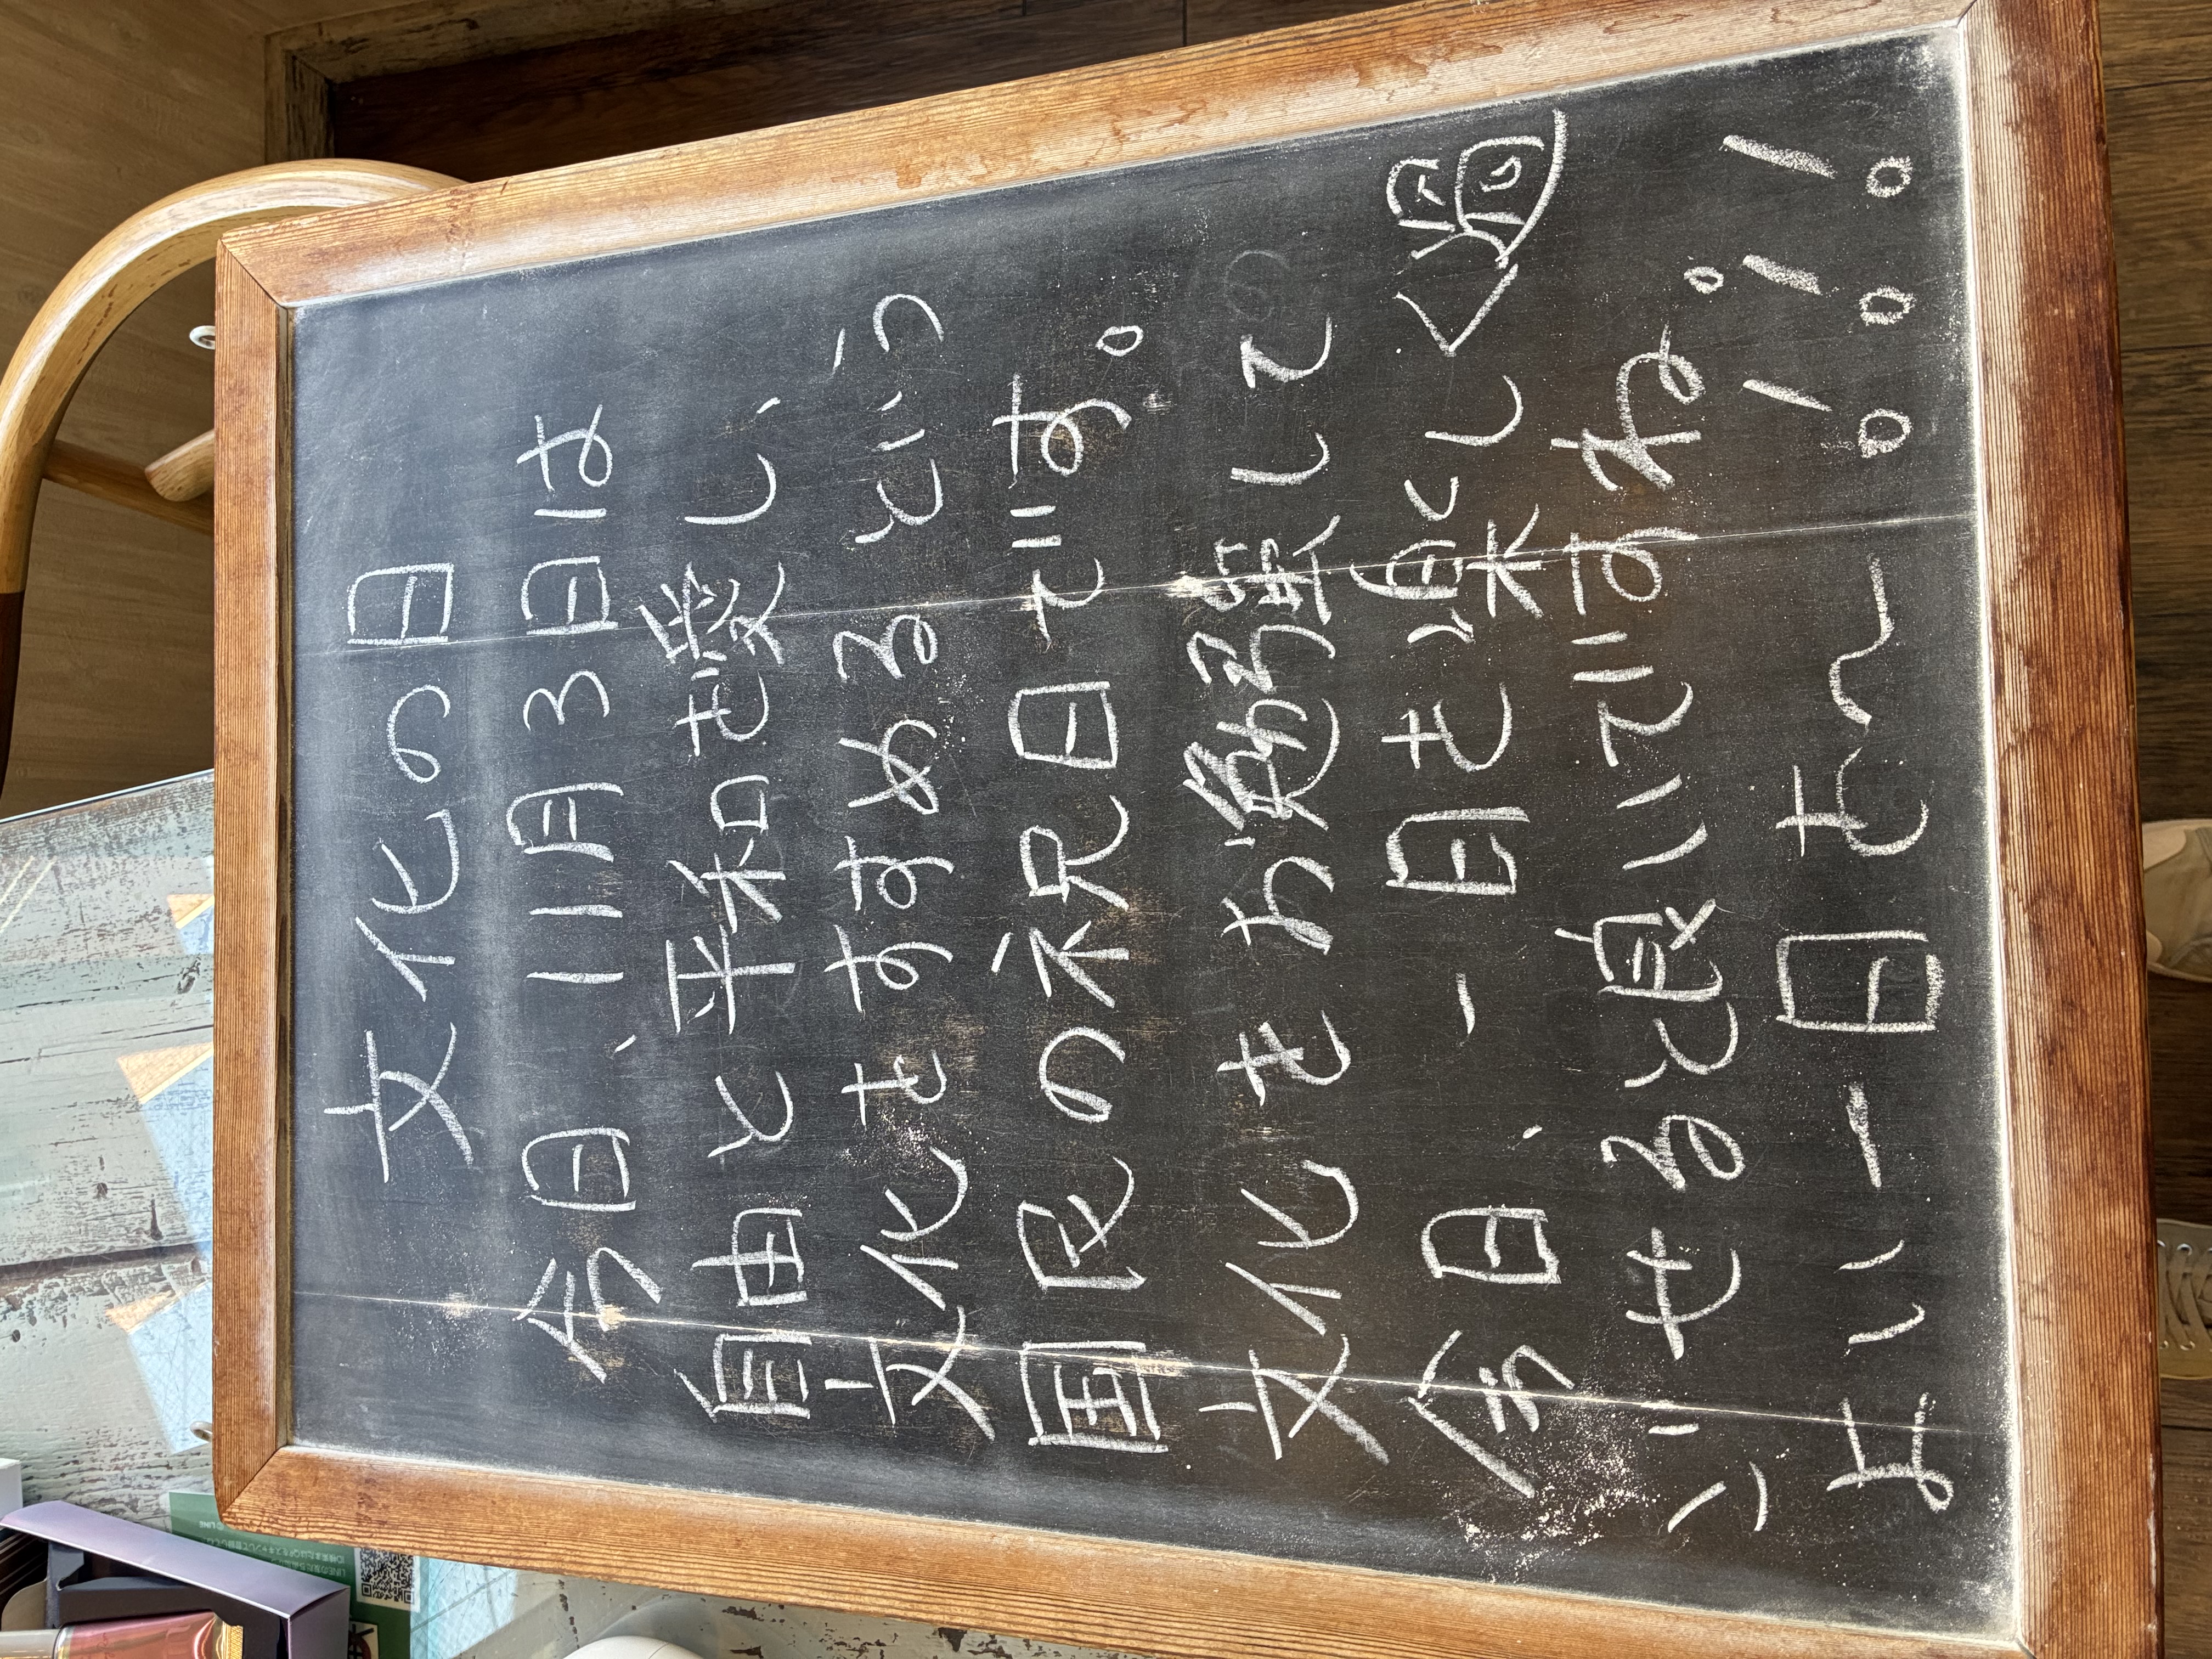 文化の日
今日、11月3日は
自由と平和を愛し、
文化をすすめるという
国民の祝日です。
文化をお勉強して
今日、一日を楽しく過
ごせると良いですね。
よい一日を〜!!!